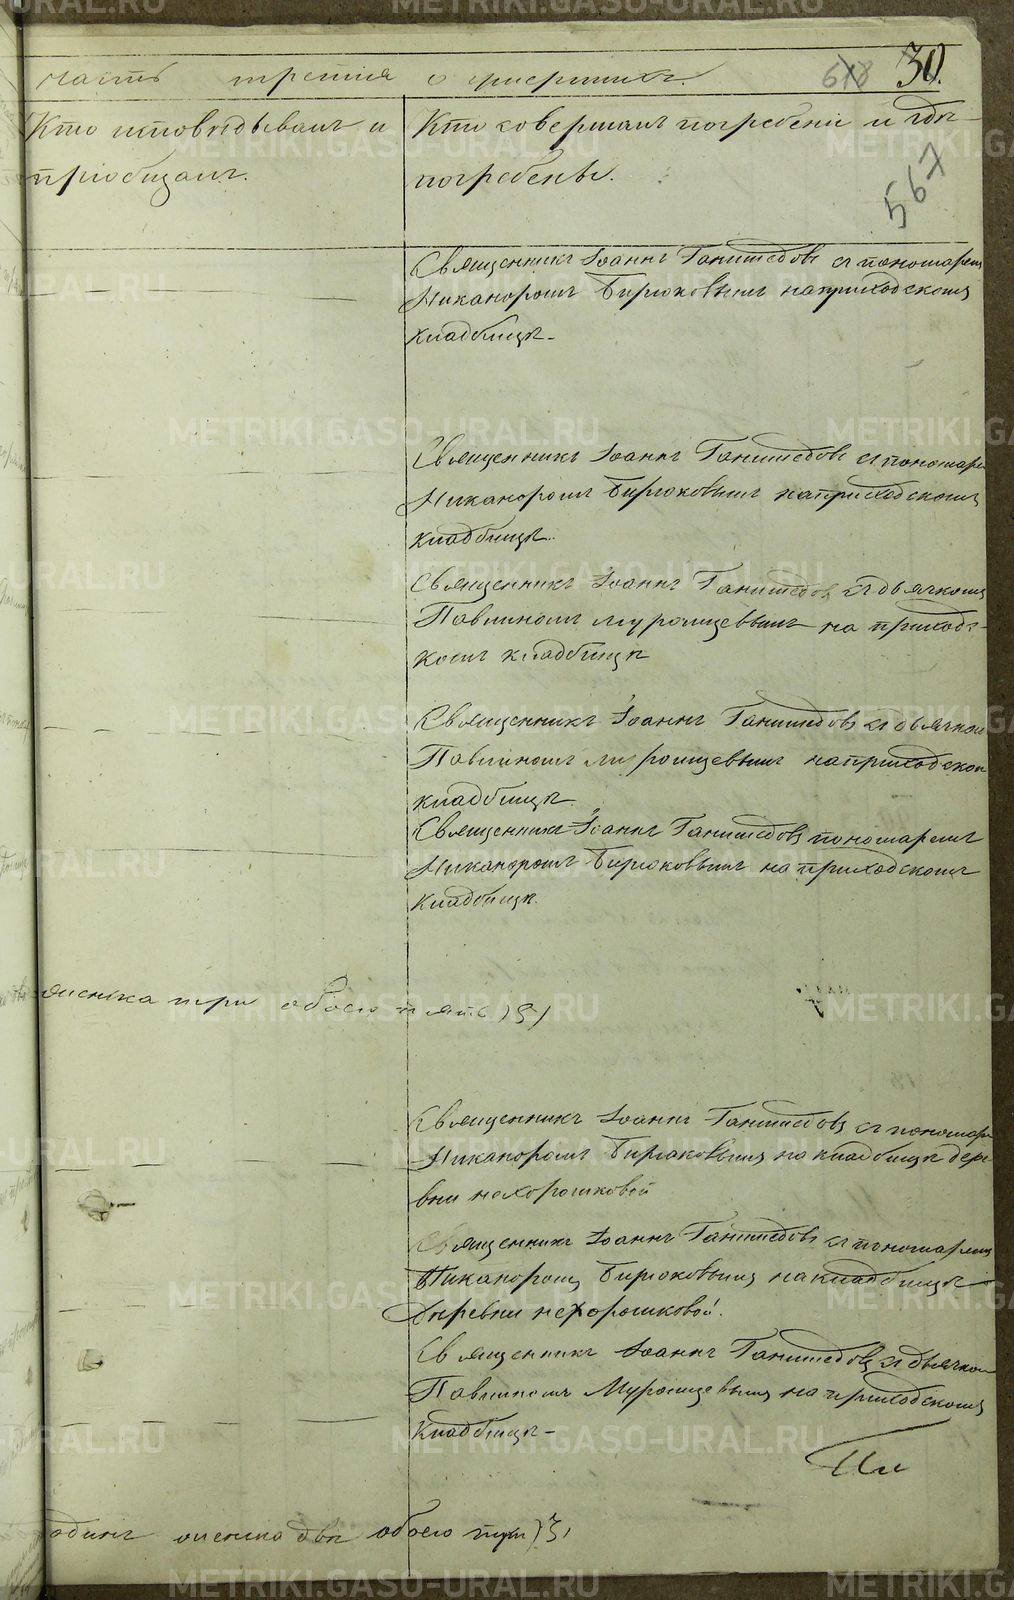 часть третия о умершихъ
618 30.
567
Кто исповѣдывалъ и
пріобщалъ.
Кто совершалъ погребеніе и гдѣ
погребены.
Священникъ Іоаннъ съ пономаремъ
Никаноромъ Бирюковымъ на приходскомъ
кладбищѣ.
Священникъ Іоаннъ съ пономаремъ
Никаноромъ Бирюковымъ на приходскомъ
кладбищѣ.
Священникъ Іоаннъ съ дьячкомъ
Павлиномъ Муромцевымъ на приход-
комъ кладбищѣ
Священникъ Іоаннъ съ дьячкомъ
Павлиномъ Муромцевымъ на приходском
кладбищѣ
Священникъ Іоаннъ пономаремъ
Никаноромъ Бирюковымъ на приходскомъ
кладбищѣ.
женска три обоего пять (5)
Священникъ Іоаннъ съ пономаре
Никаноромъ Бирюковымъ на кладбищѣ дере-
вни нехорошковой
Священникъ Іоаннъ съ пономаремъ
Никаноромъ Бирюковымъ на кладбищѣ
деревни нехорошковой.
Священникъ Іоаннъ съ дьячком
Павлиномъ Муромцевымъ на приходскомъ
кладбищѣ
одинъ женска двѣ обоего три (3)
METRIKI.GASO-URAL.RU